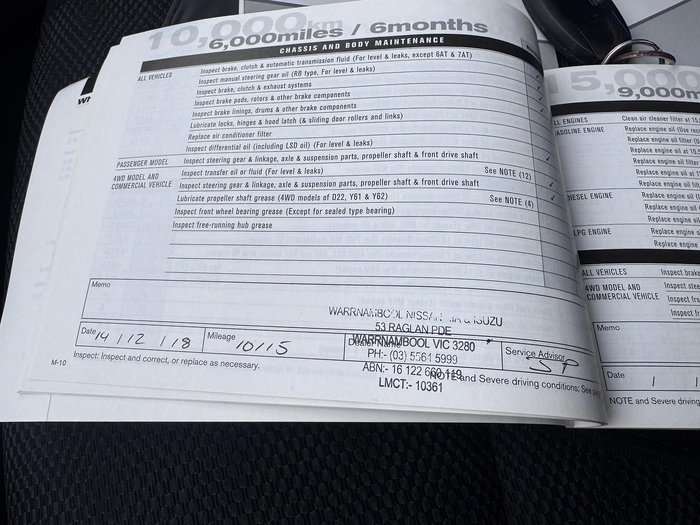 10,000km
6,000miles / 6months
CHASSIS AND BODY MAINTENANCE
Inspect brake, clutch & automatic transmission fluid (For level & leaks, except 6AT & 7AT)
ALL VEHICLES
Inspect manual steering gear oil (RB type, For level & leaks)
Inspect brake, clutch & exhaust systems
Inspect brake pads, rotors & other brake components
Inspect brake linings, drums & other brake components
Lubricate locks, hinges & hood latch (& sliding door rollers and links)
Replace air conditioner filter
Inspect differential oil (including LSD oil) (For level & leaks)
PASSENGER MODEL Inspect steering gear & linkage, axle & suspension parts, propeller shaft & front drive shaft
4WD MODEL AND COMMERCIAL VEHICLE
Inspect transfer oil or fluid (For level & leaks) See NOTE (12)
Inspect steering gear & linkage, axle & suspension parts, propeller shaft & front drive shaft
Lubricate propeller shaft grease (4WD models of D22, Y61 & Y62) See NOTE (4)
Inspect front wheel bearing grease (Except for sealed type bearing)
Inspect free-running hub grease
Memo
WARRNAMBOOL NISSAN & ISUZU
53 RAGLAN PDE
WARRNAMBOOL VIC 3280
PH:- (03) 5561 5999
ABN:- 16 122 660 149
LMCT:- 10361
Date 14 / 12 / 18
Mileage 10115
Dealer Name
Service Advisor SP
M-10
Inspect: Inspect and correct, or replace as necessary.
NOTE and Severe driving conditions: See
15,000
9,000m
ALL ENGINES Clean air cleaner filter at 15,
GASOLINE ENGINE
Replace engine oil (Us
Replace engine oil filter (U
Replace engine oil at 10,5
Replace engine oil filter
Replace engine oil
Replace engine oil
DIESEL ENGINE
Replace engine oil (
Replace engine oil
Replace engine oil
LPG ENGINE
Replace engine
Replace engine
ALL VEHICLES Inspect brake
4WD MODEL AND COMMERCIAL VEHICLE
Inspect stee
Inspect fro
Inspect fr
Memo
Date / /
NOTE and Severe driving